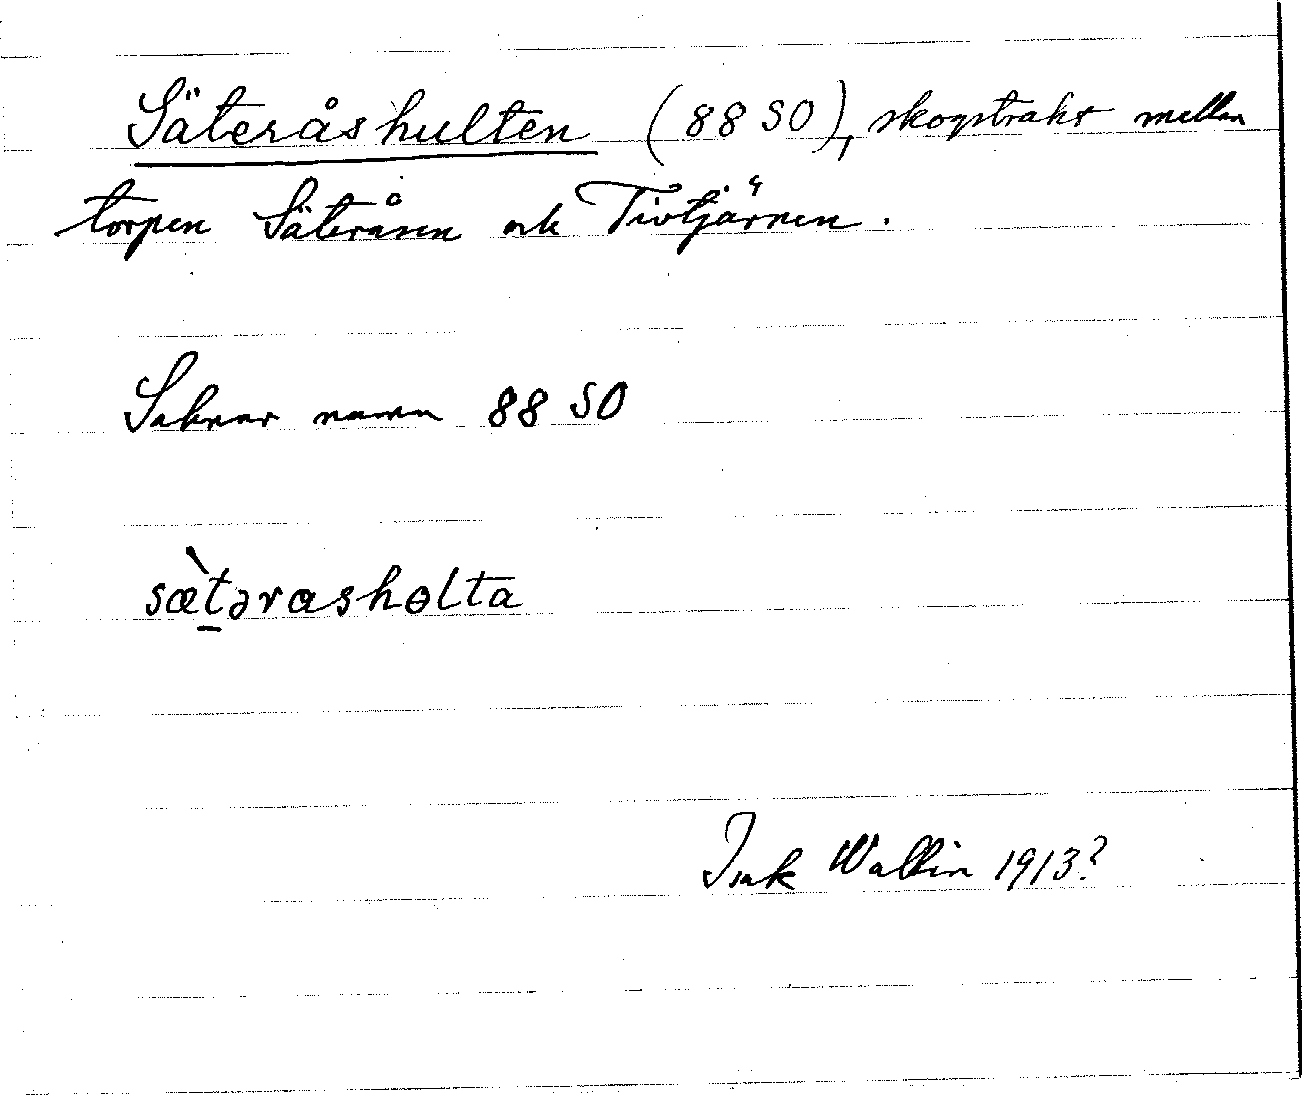 Säteråshulten (88 SO), skogstrakt mellan
torpen Säteråsen och Tivtjärnen.
Saknar namn 88 SO
sæ̀tərasholta
Isak Wallin 1913?